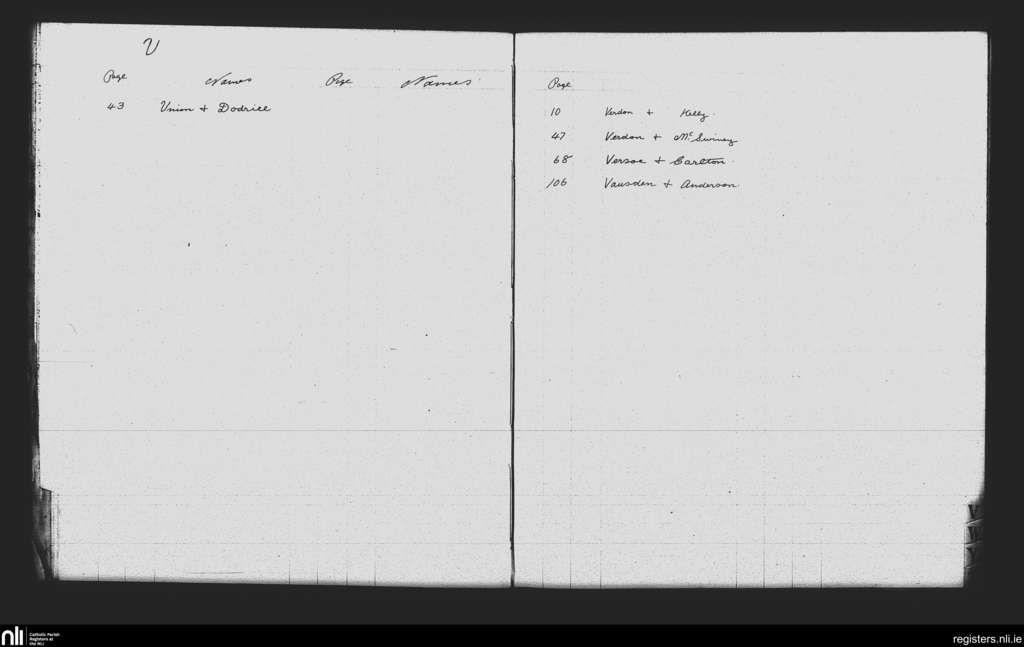 V
Page Names Page Names
43 Union + Dodrill
Page
10 Verdon + Kelly.
47 Verdon + McSwiney
68 Versoe + Carlton.
106 Vausden + Anderson.
V
W
Y
nli Catholic Parish
Registers at
the NLI
registers.nli.ie